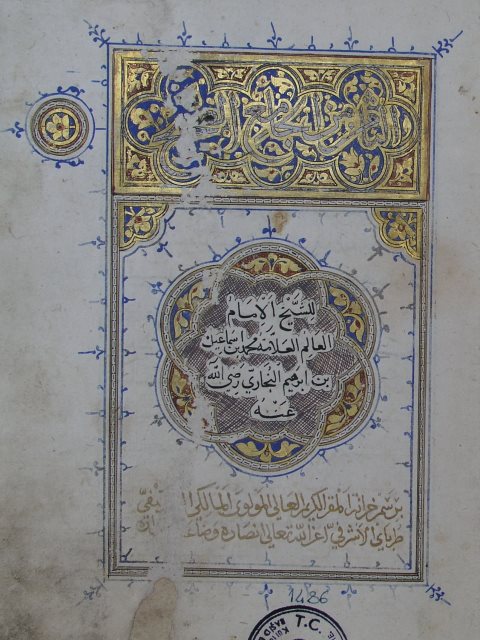 من الجامع الصحيح
للشيخ الامام
العالم العلامة محمد بن اسماعيل
بن ابرهيم البخاري رضى الله
عنه
برسم خزانة المقر الكريم العالي المولوي المالكي
طرباي الاشرفي اعز الله تعالى انصاره
1486
T.C.